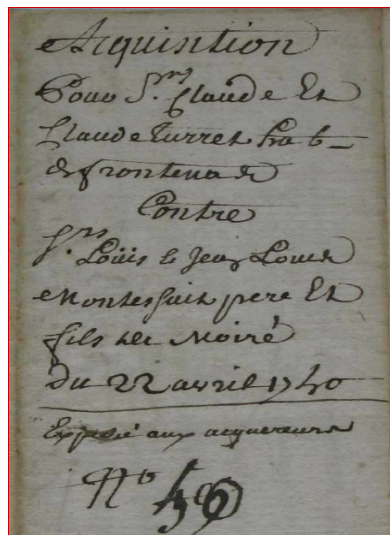 Acquisition
Pour S.rs Claude Et
Claude Turret hab-
de frontenas
Contre
S.rs Loüis & Jean Louis
Montessuit pere Et
fils de Moiré
du 22 avril 1740
Expedié aux acquereurs
N°